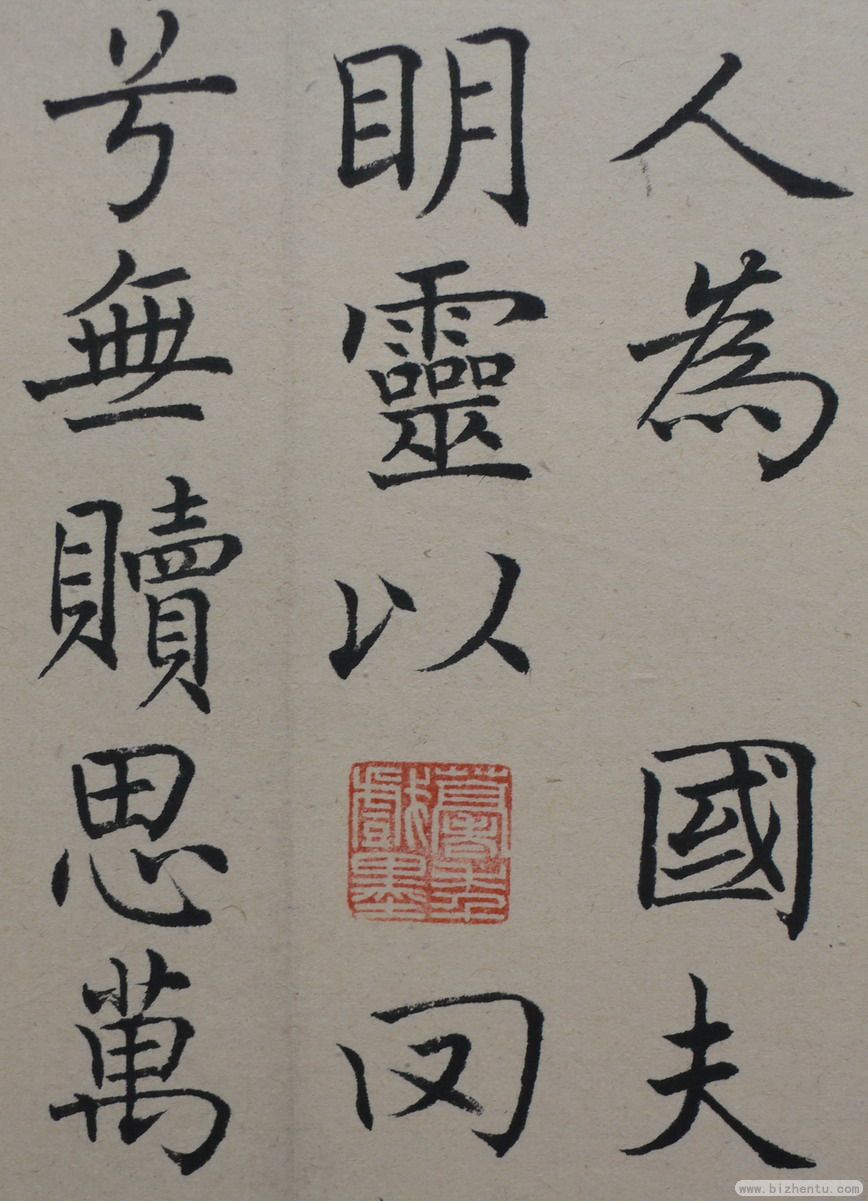 人為國夫
眀靈以
兮無贖思萬
www.bizhentu.com